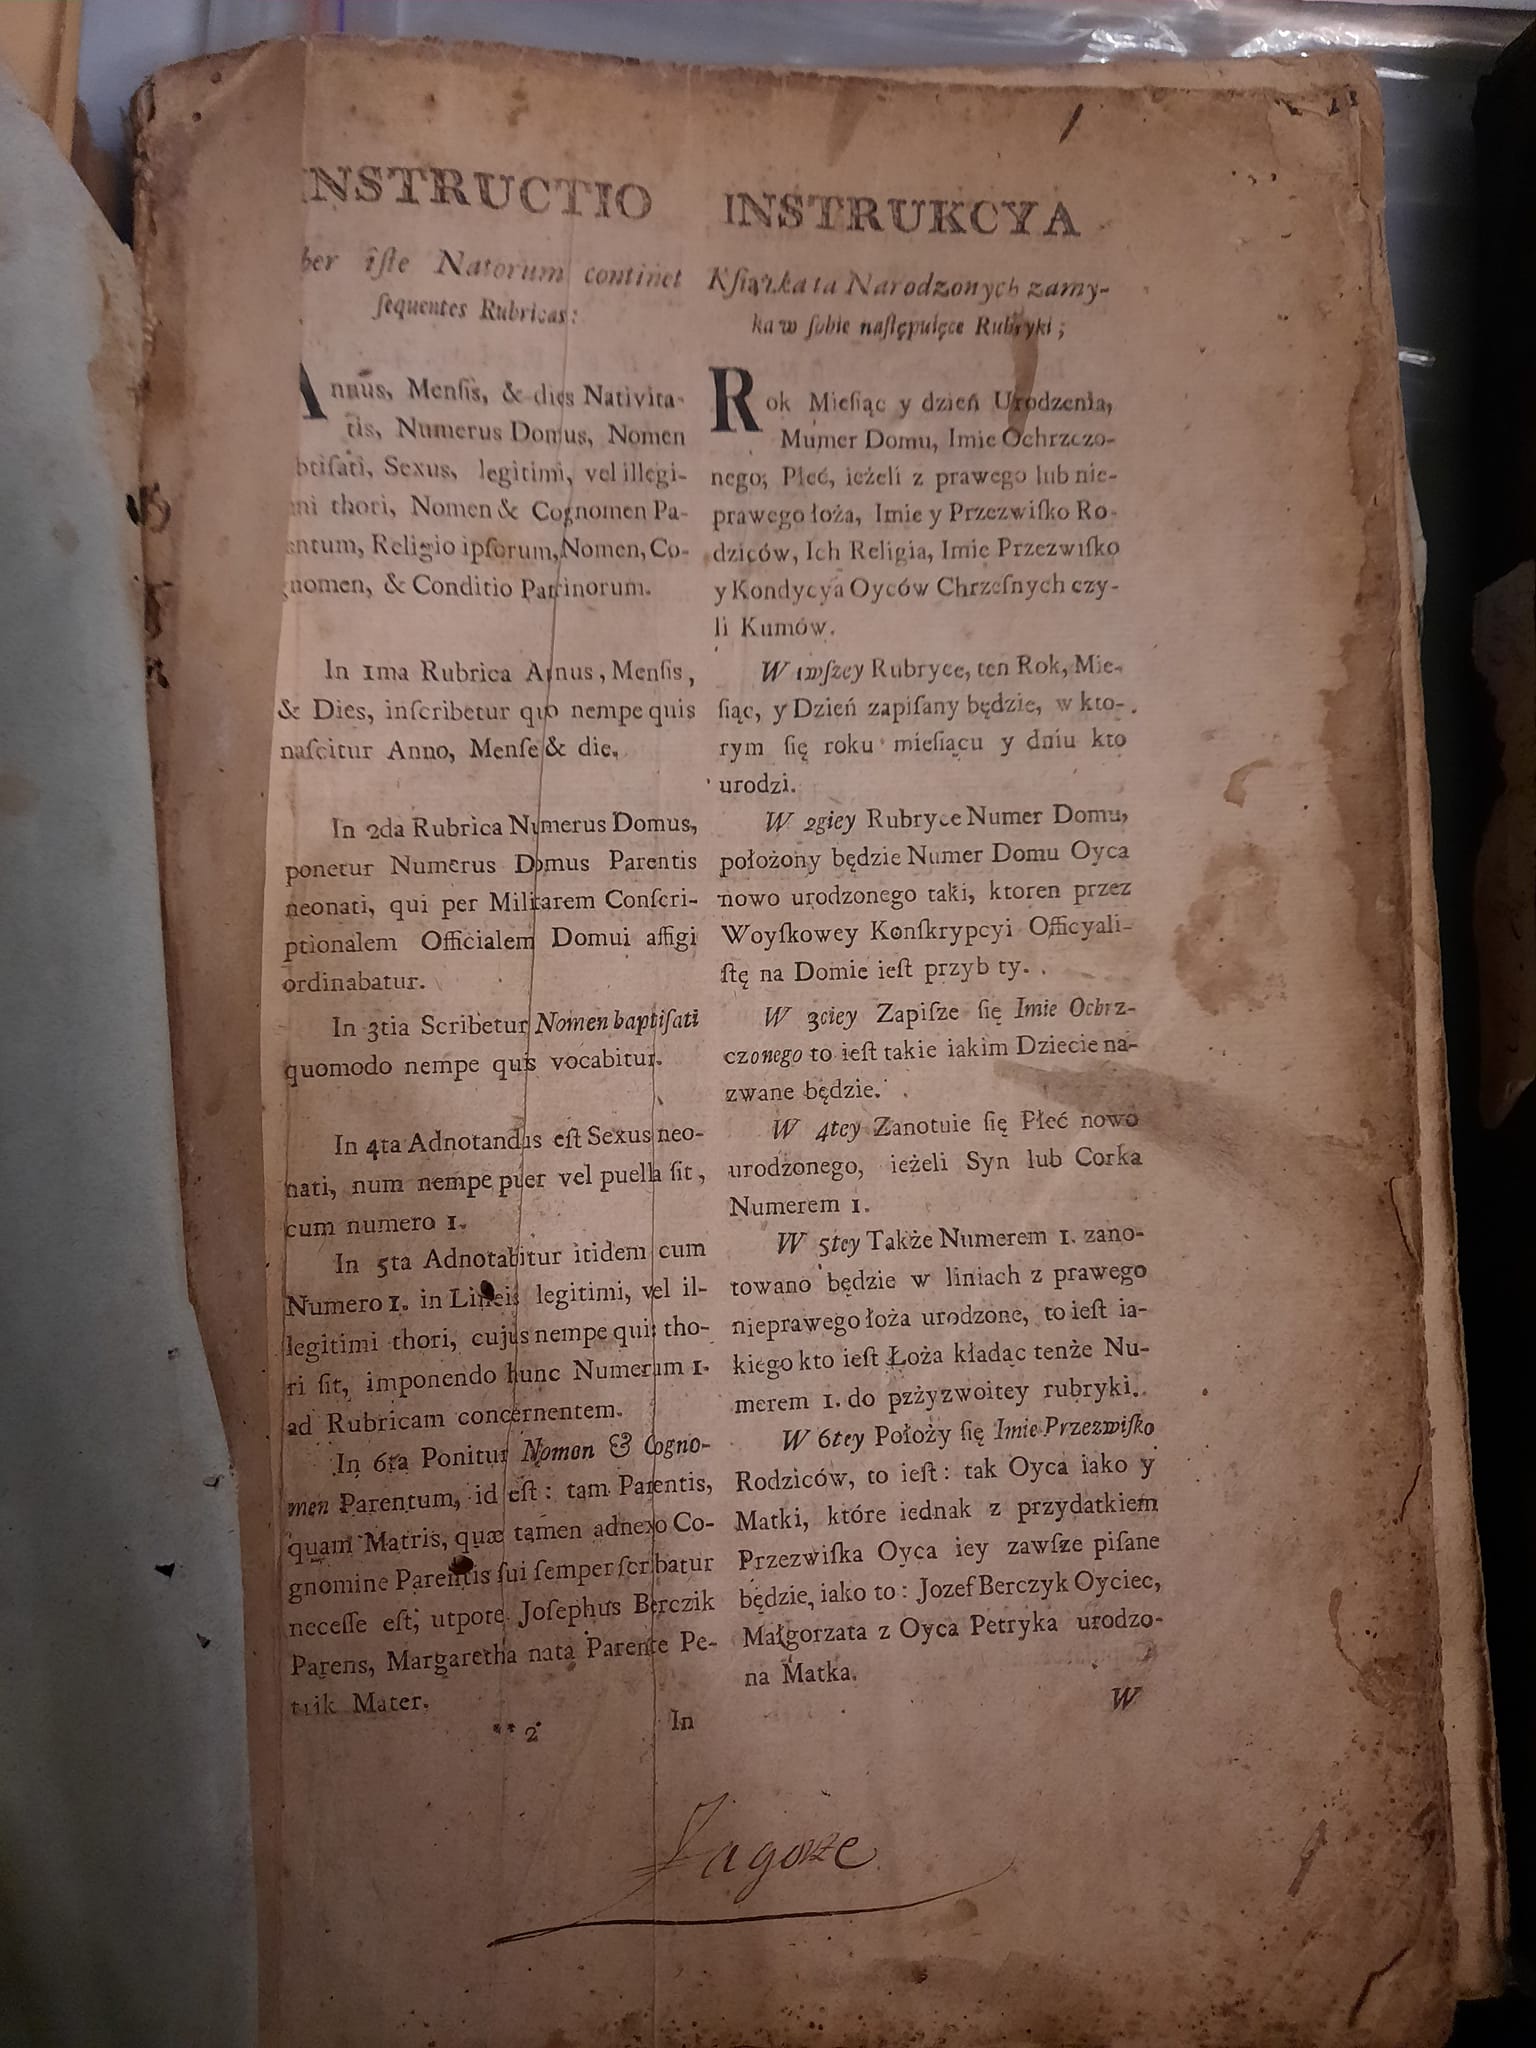 INSTRUCTIO
ber iſte Natorum continet
ſequentes Rubricas:
Annus, Menſis, & dies Nativita-
tis, Numerus Domus, Nomen
btiſati, Sexus, legitimi, vel illegi-
mi thori, Nomen & Cognomen Pa-
entum, Religio ipſorum, Nomen, Co-
gnomen, & Conditio Patrinorum.
In 1ma Rubrica Annus, Menſis,
& Dies, inſcribetur quo nempe quis
naſcitur Anno, Menſe & die.
In 2da Rubrica Numerus Domus,
ponetur Numerus Domus Parentis
neonati, qui per Militarem Conſcri-
ptionalem Officialem Domui affigi
ordinabatur.
In 3tia Scribetur Nomen baptiſati
quomodo nempe quis vocabitur.
In 4ta Adnotandus eſt Sexus neo-
nati, num nempe puer vel puella ſit,
cum numero 1.
In 5ta Adnotabitur itidem cum
Numero 1. in Lineis legitimi, vel il-
legitimi thori, cujus nempe quis tho-
ri ſit, imponendo hunc Numerum 1.
ad Rubricam concernentem.
In 6ta Ponitur Nomen & Cogno-
men Parentum, id eſt: tam Parentis,
quam Matris, quæ tamen adnexo Co-
gnomine Parentis ſui ſemper ſcribatur
neceſſe eſt, utpote Joſephus Berczik
Parens, Margaretha nata Parente Pe-
trik Mater.
** 2 In
INSTRUKCYA
Kſiążka ta Narodzonych zamy-
ka w ſobie naſtępuięce Rubryki;
Rok Mieſiąc y dzień Urodzenia,
Mumer Domu, Imie Ochrzczo-
nego; Płeć, ieżeli z prawego lub nie-
prawego łoża, Imie y Przezwiſko Ro-
dziców, Ich Religia, Imie Przezwiſko
y Kondycya Oyców Chrzeſnych czy-
li Kumów.
W 1wſzey Rubryce, ten Rok, Mie-
ſiąc, y Dzień zapiſany będzie, w kto-
rym ſię roku mieſiącu y dniu kto
urodzi.
W 2giey Rubryce Numer Domu,
położony będzie Numer Domu Oyca
nowo urodzonego taki, ktoren przez
Woyſkowey Konſkrypcyi Officyali-
ſtę na Domie ieſt przyb ty.
W 3ciey Zapiſze ſię Imie Ochrz-
czonego to ieſt takie iakim Dziecie na-
zwane będzie.
W 4tey Zanotuie ſię Płeć nowo
urodzonego, ieżeli Syn lub Corka
Numerem 1.
W 5tey Także Numerem 1. zano-
towano będzie w liniach z prawego
nieprawego łoża urodzone, to ieſt ia-
kiego kto ieſt Łoża kładąc tenże Nu-
merem 1. do pzżyzwoitey rubryki.
W 6tey Położy ſię Imie Przezwiſko
Rodziców, to ieſt: tak Oyca iako y
Matki, które iednak z przydatkiem
Przezwiſka Oyca iey zawſze piſane
będzie, iako to: Jozef Berczyk Oyciec,
Małgorzata z Oyca Petryka urodzo-
na Matka.
W
Zagorze